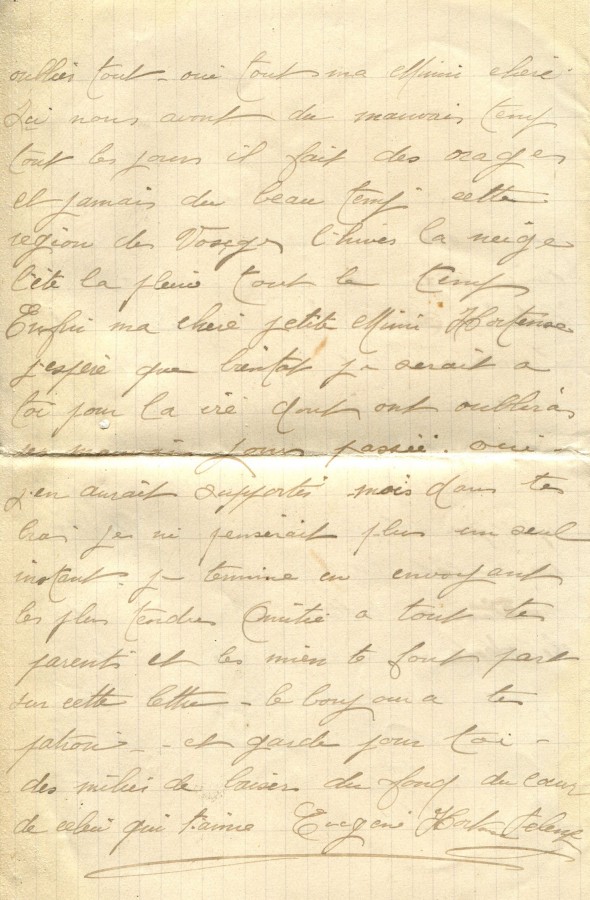 oublier tout - oui tout ma Mimi cheré
Ici nous avont du mauvais temp
tout les jours il fait des orages
et jamais du beau temp cette
région des Vosges l'hiver la neige
l'été la pluie tout le temp
Enfin ma cheré petite Mimi Hortense
j'espére que bientot je serait a
toi pour la vie dont ont oublieras
ses mauvais jours passée. oui -
j'en aurait supportés mais dans tes
bras je ne penserait plus un seul
instant. je termine en envoyant
les plus tendres Amitié a tout tes
parents et les mien te font part
sur cette lettre - le bonjour a tes
patron - - et garde pour toi -
des milier de baiser du fond du cœur
de celui qui t'aime Eugéne